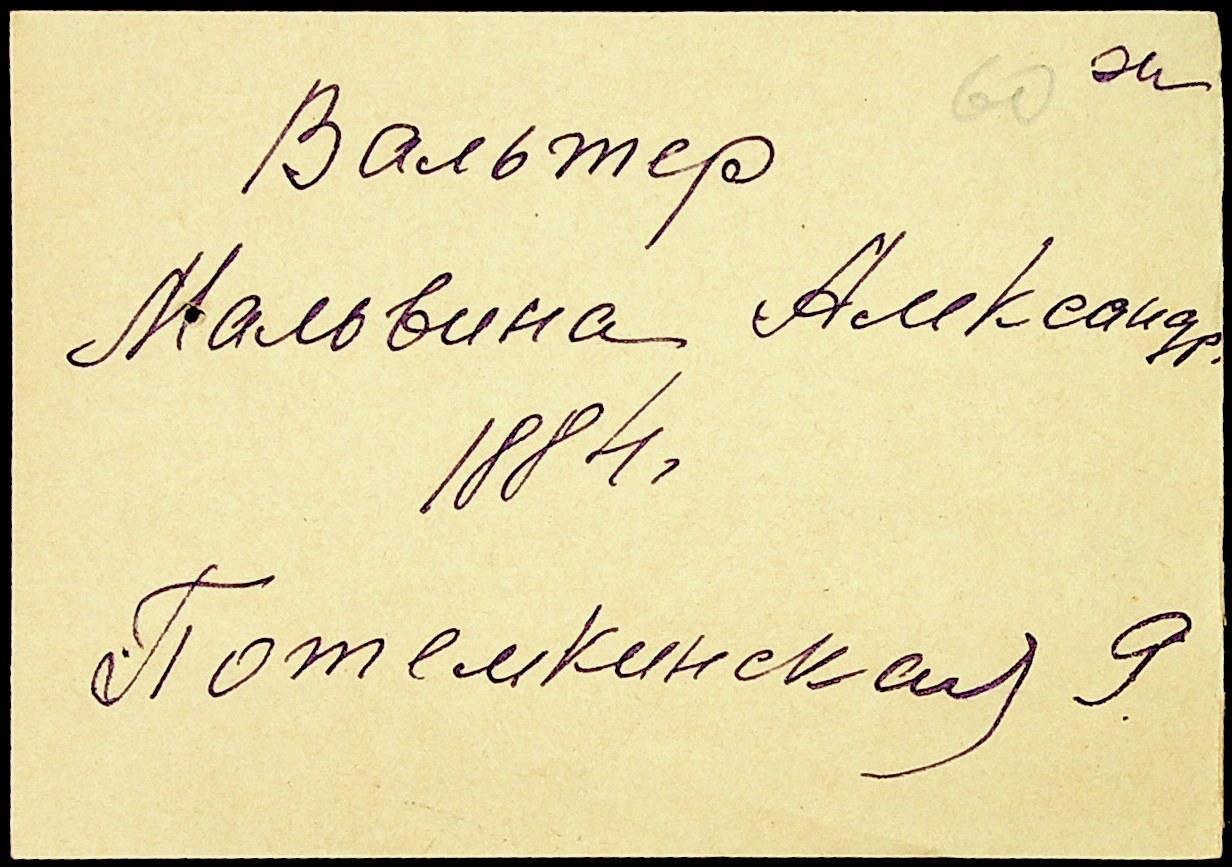 60
Вальтер
Мальвина Александр.
1884.
Потемкинская 9.